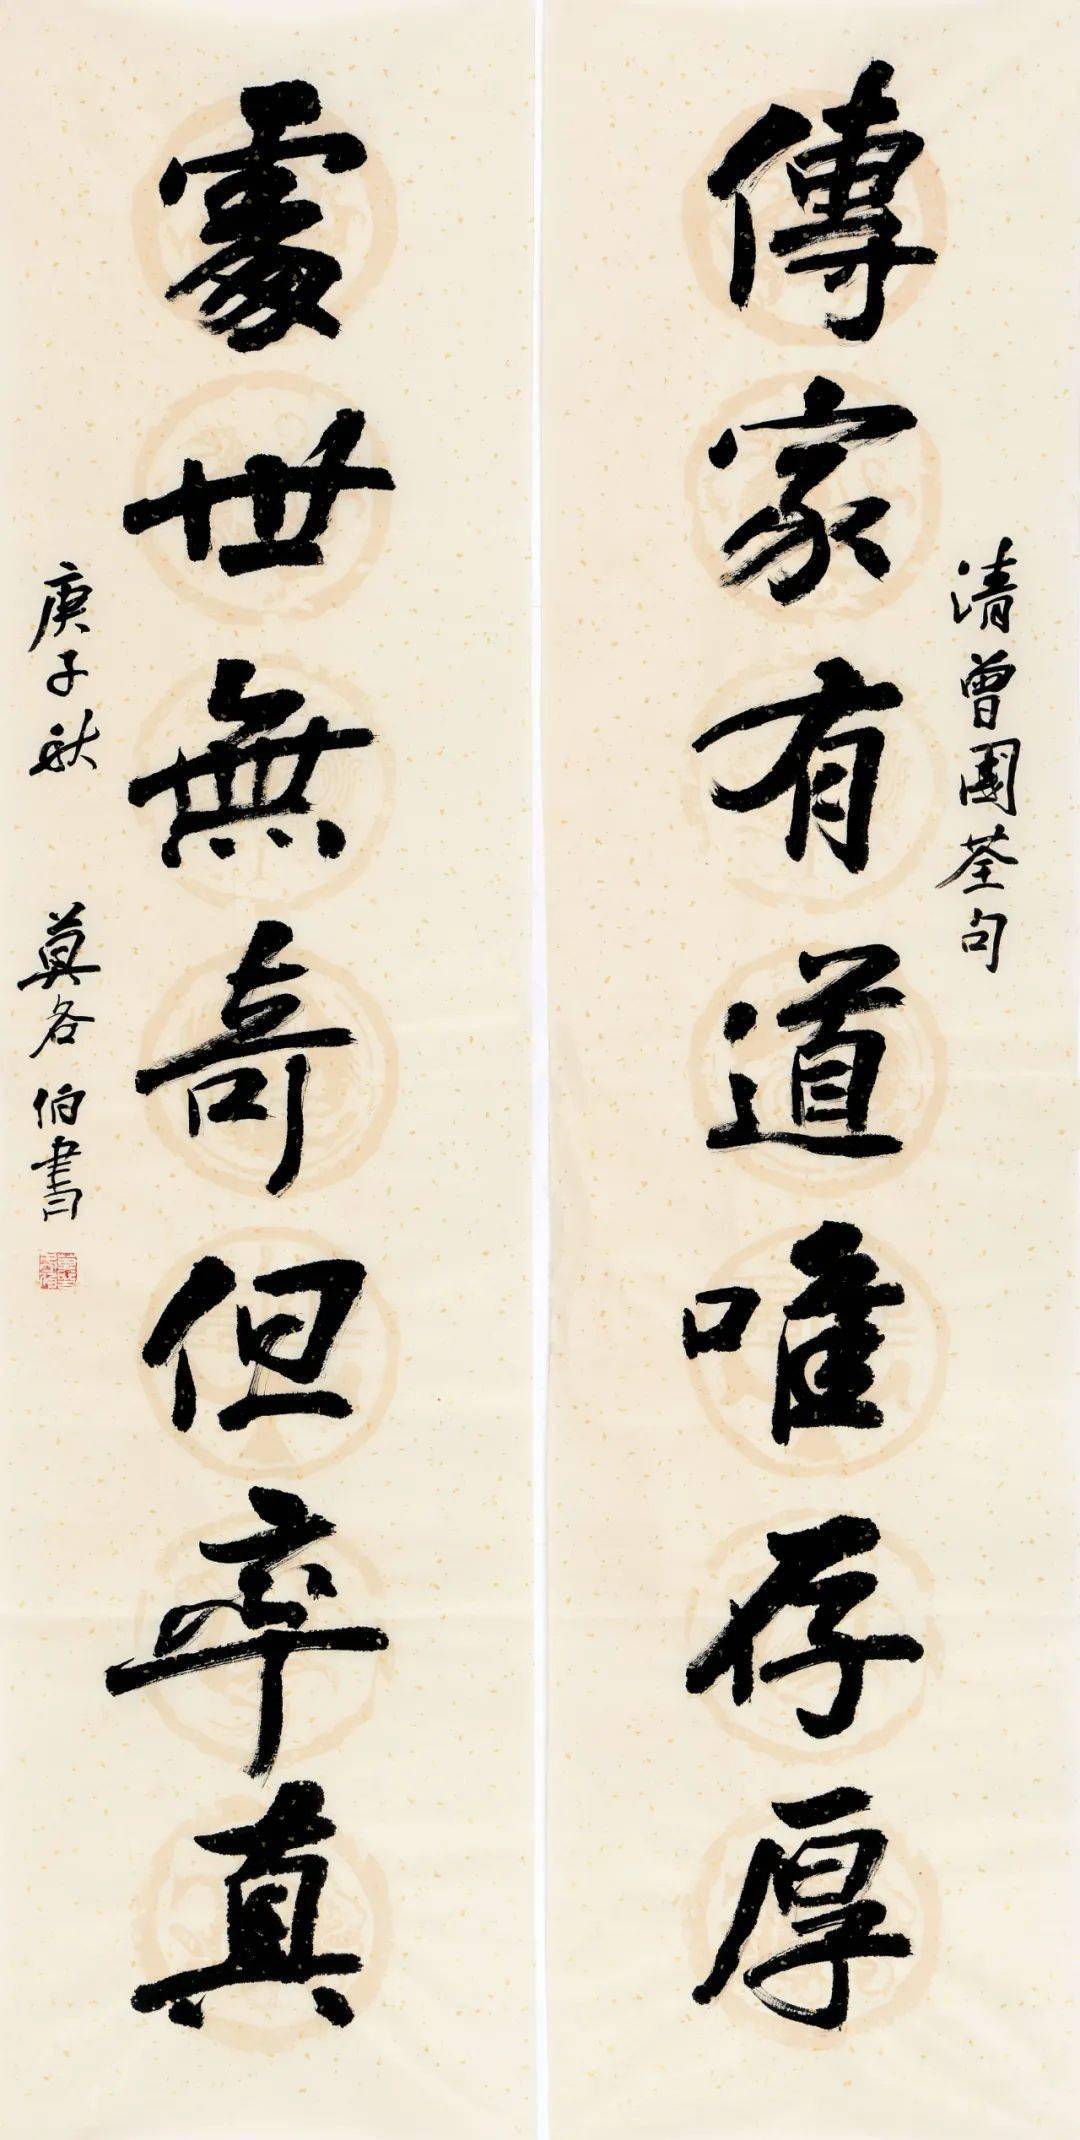 傳家有道唯存厚
清曾國荃句
處世無奇但率真
庚子秋 莫各伯書